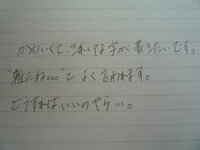 かわいくて、きれいな字が書きたいです。
"雑だね。。。"と よく言われます。
どうすればいいのやら…。